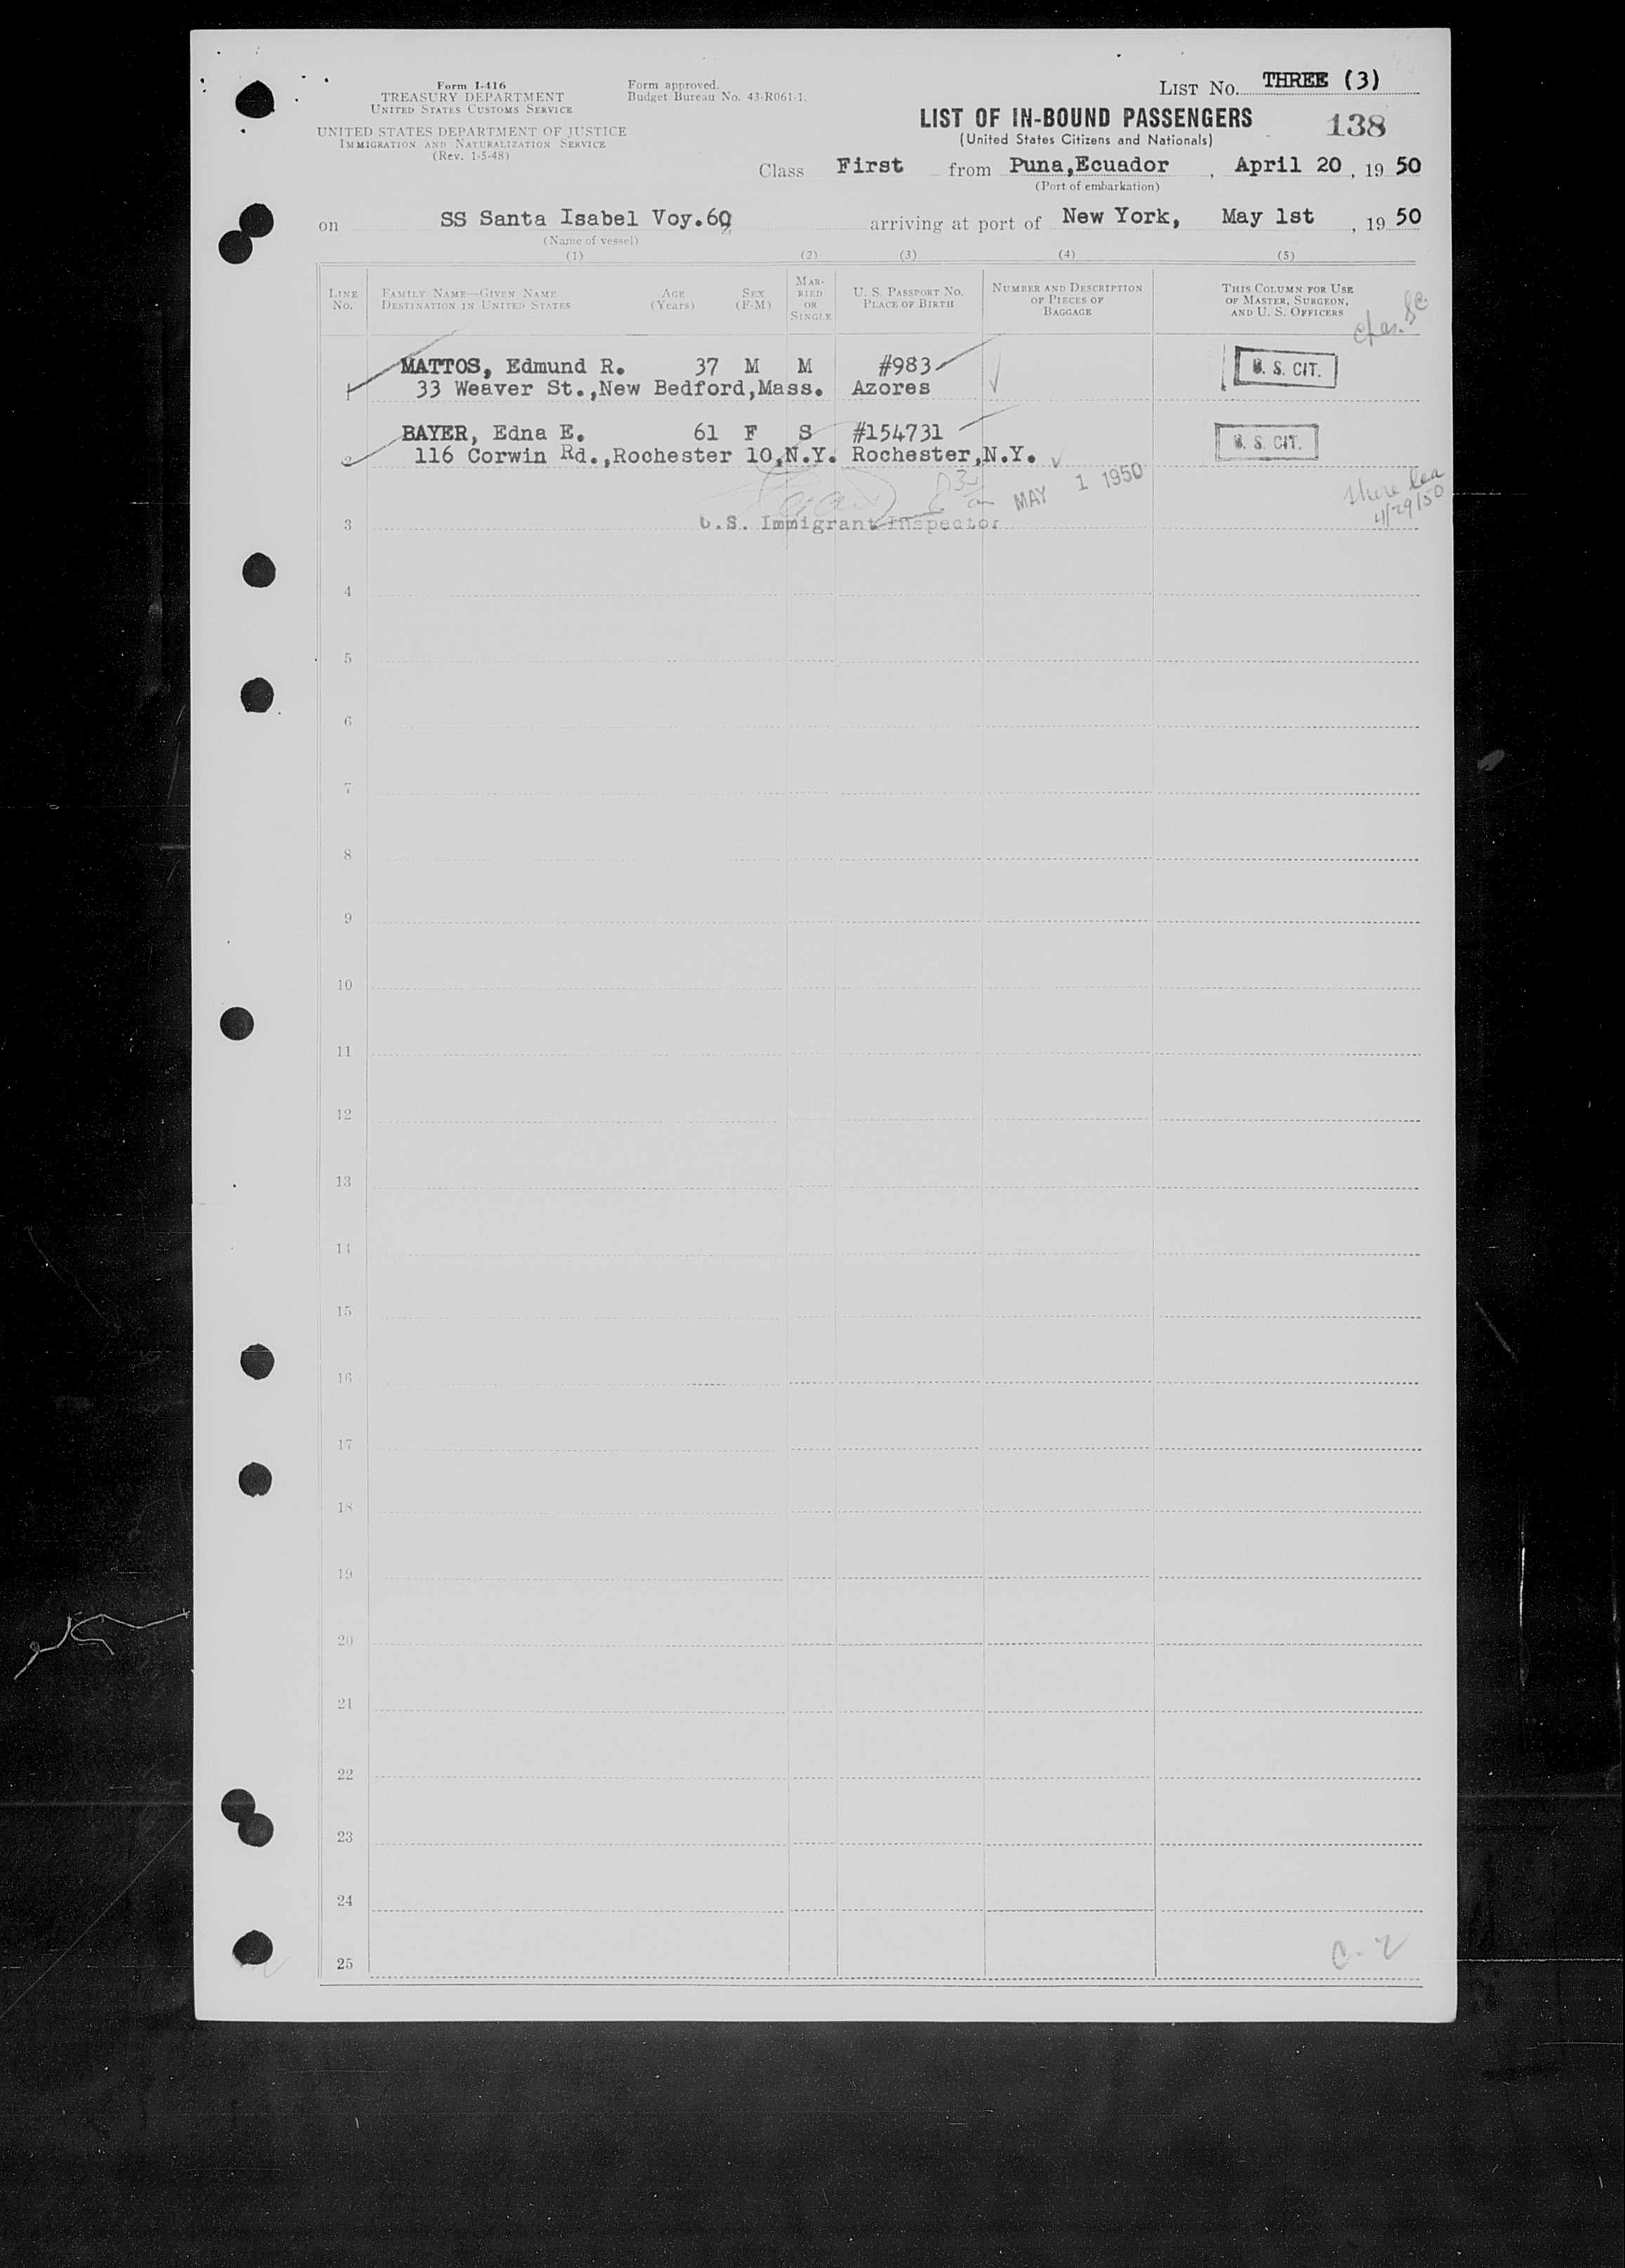 Form I-416
TREASURY DEPARTMENT
UNITED STATES CUSTOMS SERVICE
UNITED STATES DEPARTMENT OF JUSTICE
IMMIGRATION AND NATURALIZATION SERVICE
(Rev. 1-5-48)
Form approved.
Budget Bureau No. 43-R061-1.
LIST No. THREE (3)
LIST OF IN-BOUND PASSENGERS
138
(United States Citizens and Nationals)
Class First from Puna,Ecuador, April 20, 19 50
(Port of embarkation)
on SS Santa Isabel Voy.60 arriving at port of New York, May 1st, 19 50
(Name of vessel)
(1) (2) (3) (4) (5)
LINE No. FAMILY NAME—GIVEN NAME DESTINATION IN UNITED STATES AGE (Years) SEX (F-M) MARRIED OR SINGLE U. S. PASSPORT No. PLACE OF BIRTH NUMBER AND DESCRIPTION OF PIECES OF BAGGAGE THIS COLUMN FOR USE OF MASTER, SURGEON, AND U. S. OFFICERS
MATTOS, Edmund R. 37 M M #983 U. S. CIT.
1 33 Weaver St.,New Bedford,Mass. Azores
BAYER, Edna E. 61 F S #154731 U. S. CIT.
2 116 Corwin Rd.,Rochester 10,N.Y. Rochester,N.Y.
MAY 1 1950
4/29/50
3 U.S. Immigrant Inspector
4
5
6
7
8
9
10
11
12
13
14
15
16
17
18
19
20
21
22
23
24
C-2
25